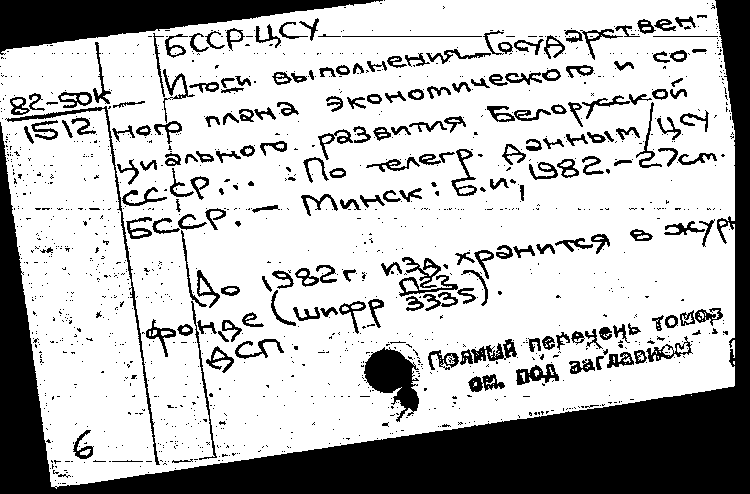 БССР. ЦСУ.
Итоги выполнения Государствен-
82-50К
1512
ного плана экономического и со-
циального развития Белорусской
СССР... : По телегр. данным / ЦСУ
БССР. – Минск : Б.и., 1982. – 27см.
До 1982г. изд. хранится в журн
фонде (шифр П22/3335).
ДСП.
Полный перечень томов
см. под заглавием
6